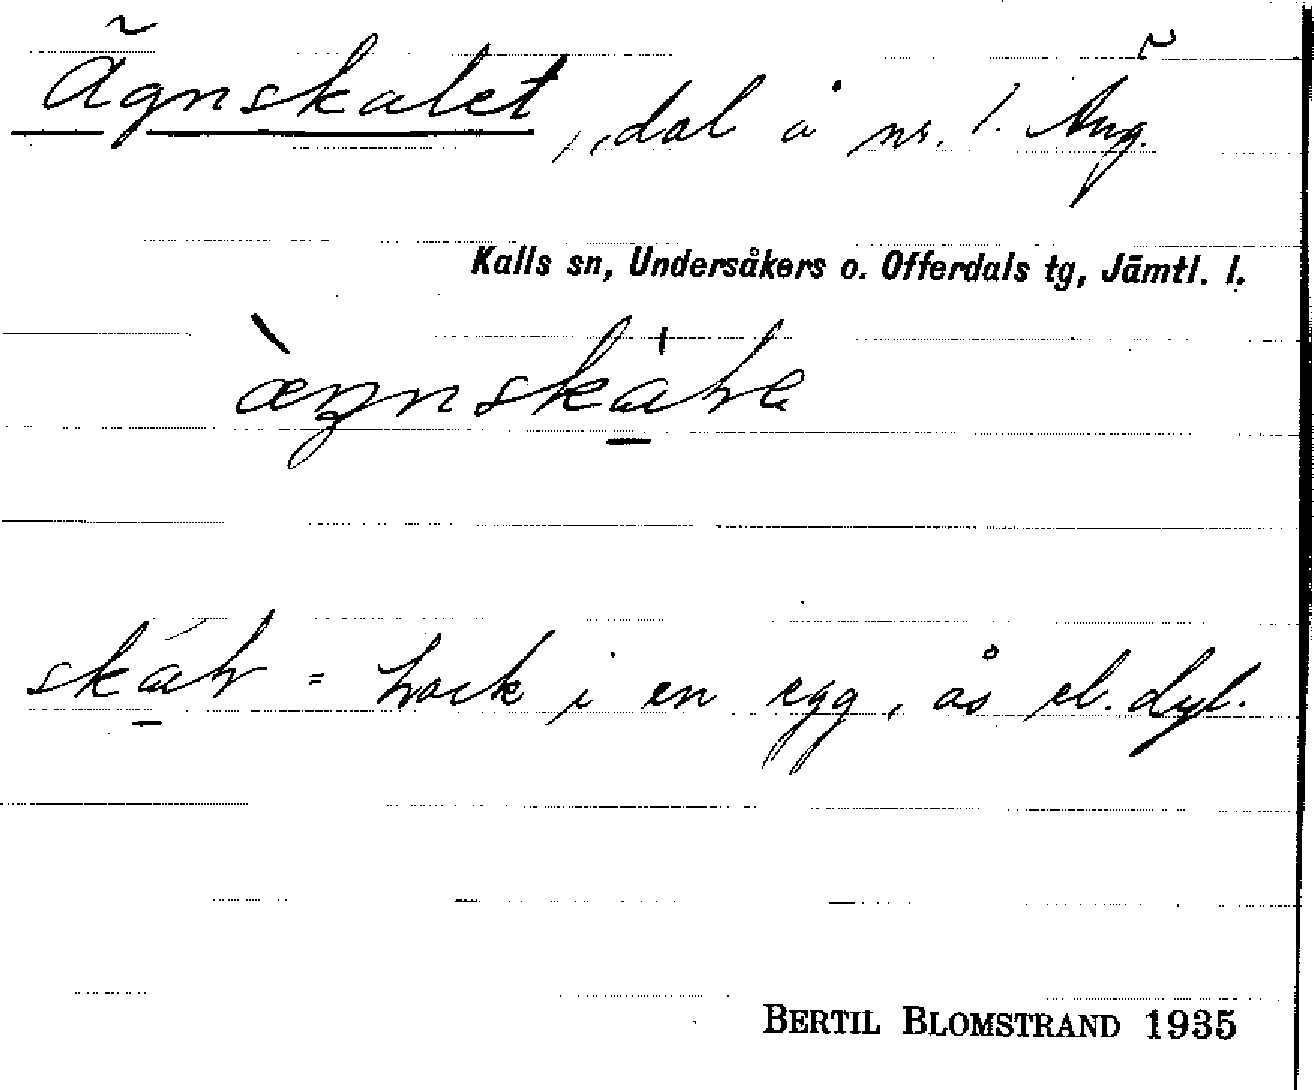 Ägnskalet, dal å nr. 1. Äng.
Kalls sn, Undersåkers o. Offerdals tg, Jämtl. l.
skàɫ = hack i en egg, ås el. dyl.
BERTIL BLOMSTRAND 1935